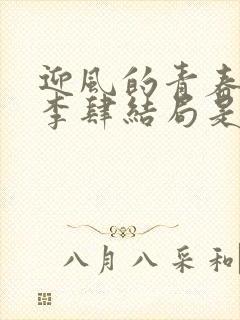 迎風的青春
李肆結局是
八月八采和